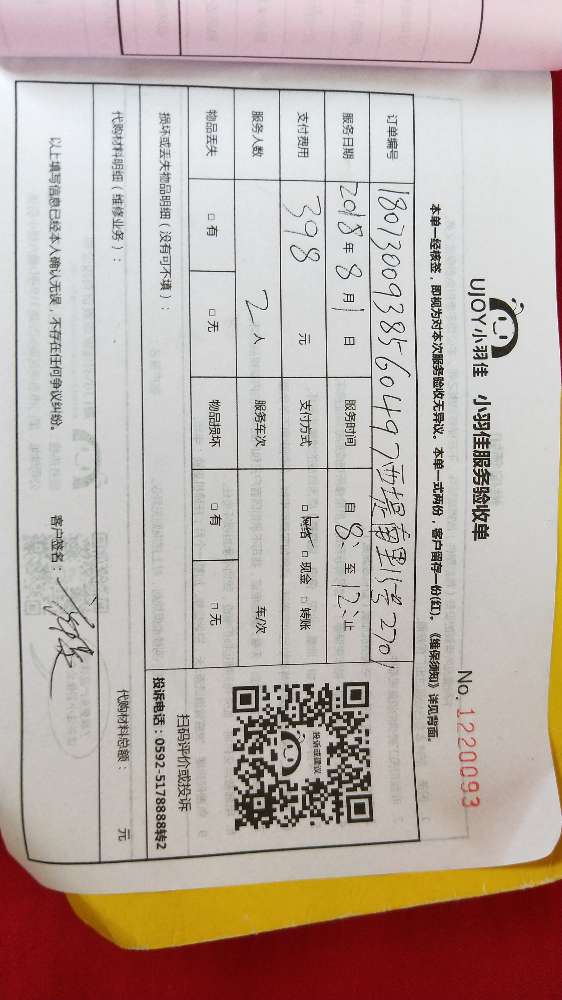 UJOY小羽佳 小羽佳服务验收单
No. 1220093
本单一经核签,即视为对本次服务验收无异议。本单一式两份,客户留存一份(红)。《维保须知》详见背面。
订单编号 180730093856 0497 西堤南里15号2701
服务日期 2018年8月1日 服务时间 自8:至12:止
支付费用 398 元 支付方式 □网络 □现金 □转账
服务人数 2人 服务车次 车/次
物品丢失 □有 □无 物品损坏 □有 □无
投诉或建议
扫码评价或投诉
投诉电话:0592-5178888转2
损坏或丢失物品明细(没有可不填):
代购材料明细(维修业务): 代购材料总额: 元
以上填写信息已经本人确认无误,不存在任何争议纠纷。 客户签名: